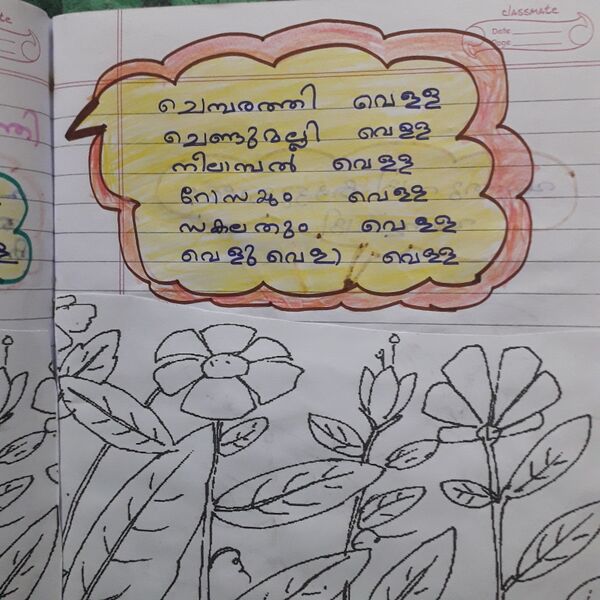 classmate
Date
Page
ചെമ്പരത്തി വെള്ള
ചെണ്ടുമല്ലി വെള്ള
നീലാമ്പൽ വെള്ള
റോസയും വെള്ള
സകലതും വെള്ള
വെളുവെളാ വെള്ള